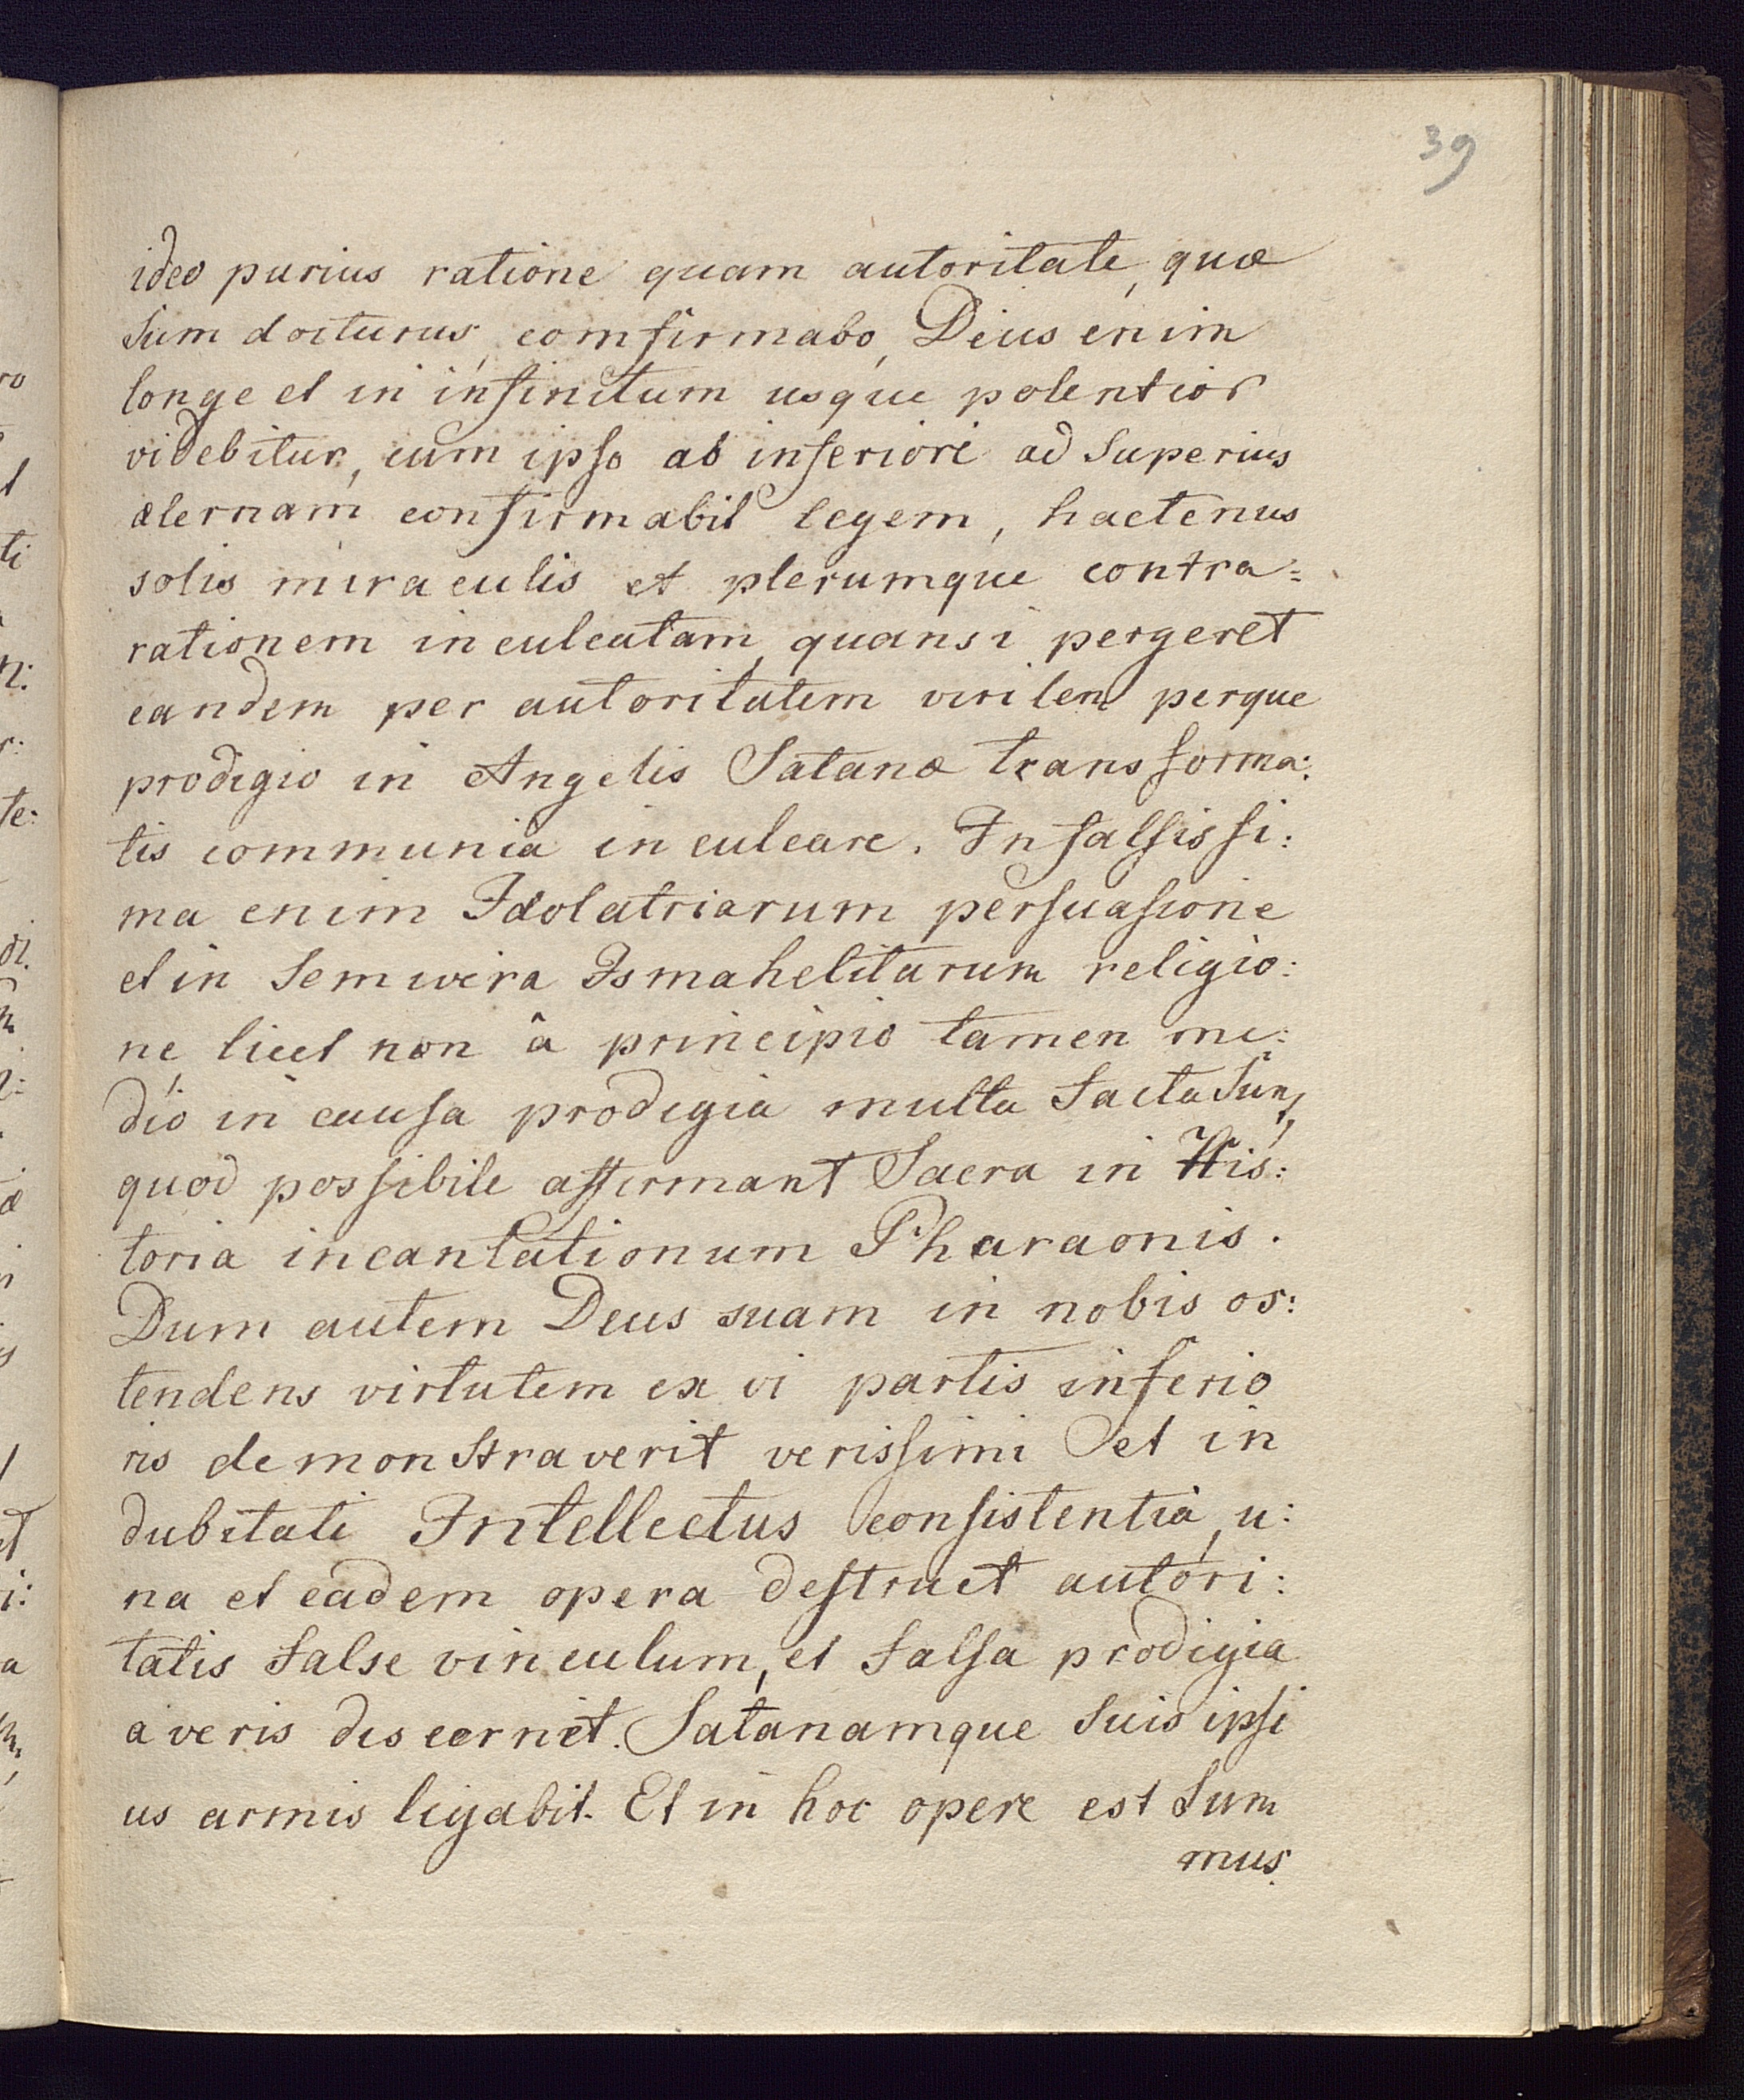 39
ideo purius ratione quam autoritate, quæ
sum docturus, comfirmabo, Deus enim
longe et in infinitum usque potentior
videbitur, cum ipso ab inferiori ad superius
æternam confirmabit legem, hactenus
solis miraculis et plerumque contra=
rationem inculcatam, quansi pergeret
eandem per autoritatem virilem perque
prodigio in Angelis Satanæ transforma:
tis communia inculcare. In falsissi:
ma enim Idolatriarum persuasione
et in semivera Ismahelitarum religio:
ne, licet non â principio tamen me:
dio in causa prodigia multa facta sunt,
quod possibile affirmant Sacra in His:
toria incantationum Pharaonis.
Dum autem Deus suam in nobis os:
tendens virtutem ex vi partis inferio
ris demonstraverit verissimi et in
dubitati Intellectus consistentia, u:
na et eadem opera destruet autori:
tatis false vinculum, et falsa prodigia
a veris discernet. Satanamque suis ipsi
us armis ligabit. Et in hoc opere est sum
mus.